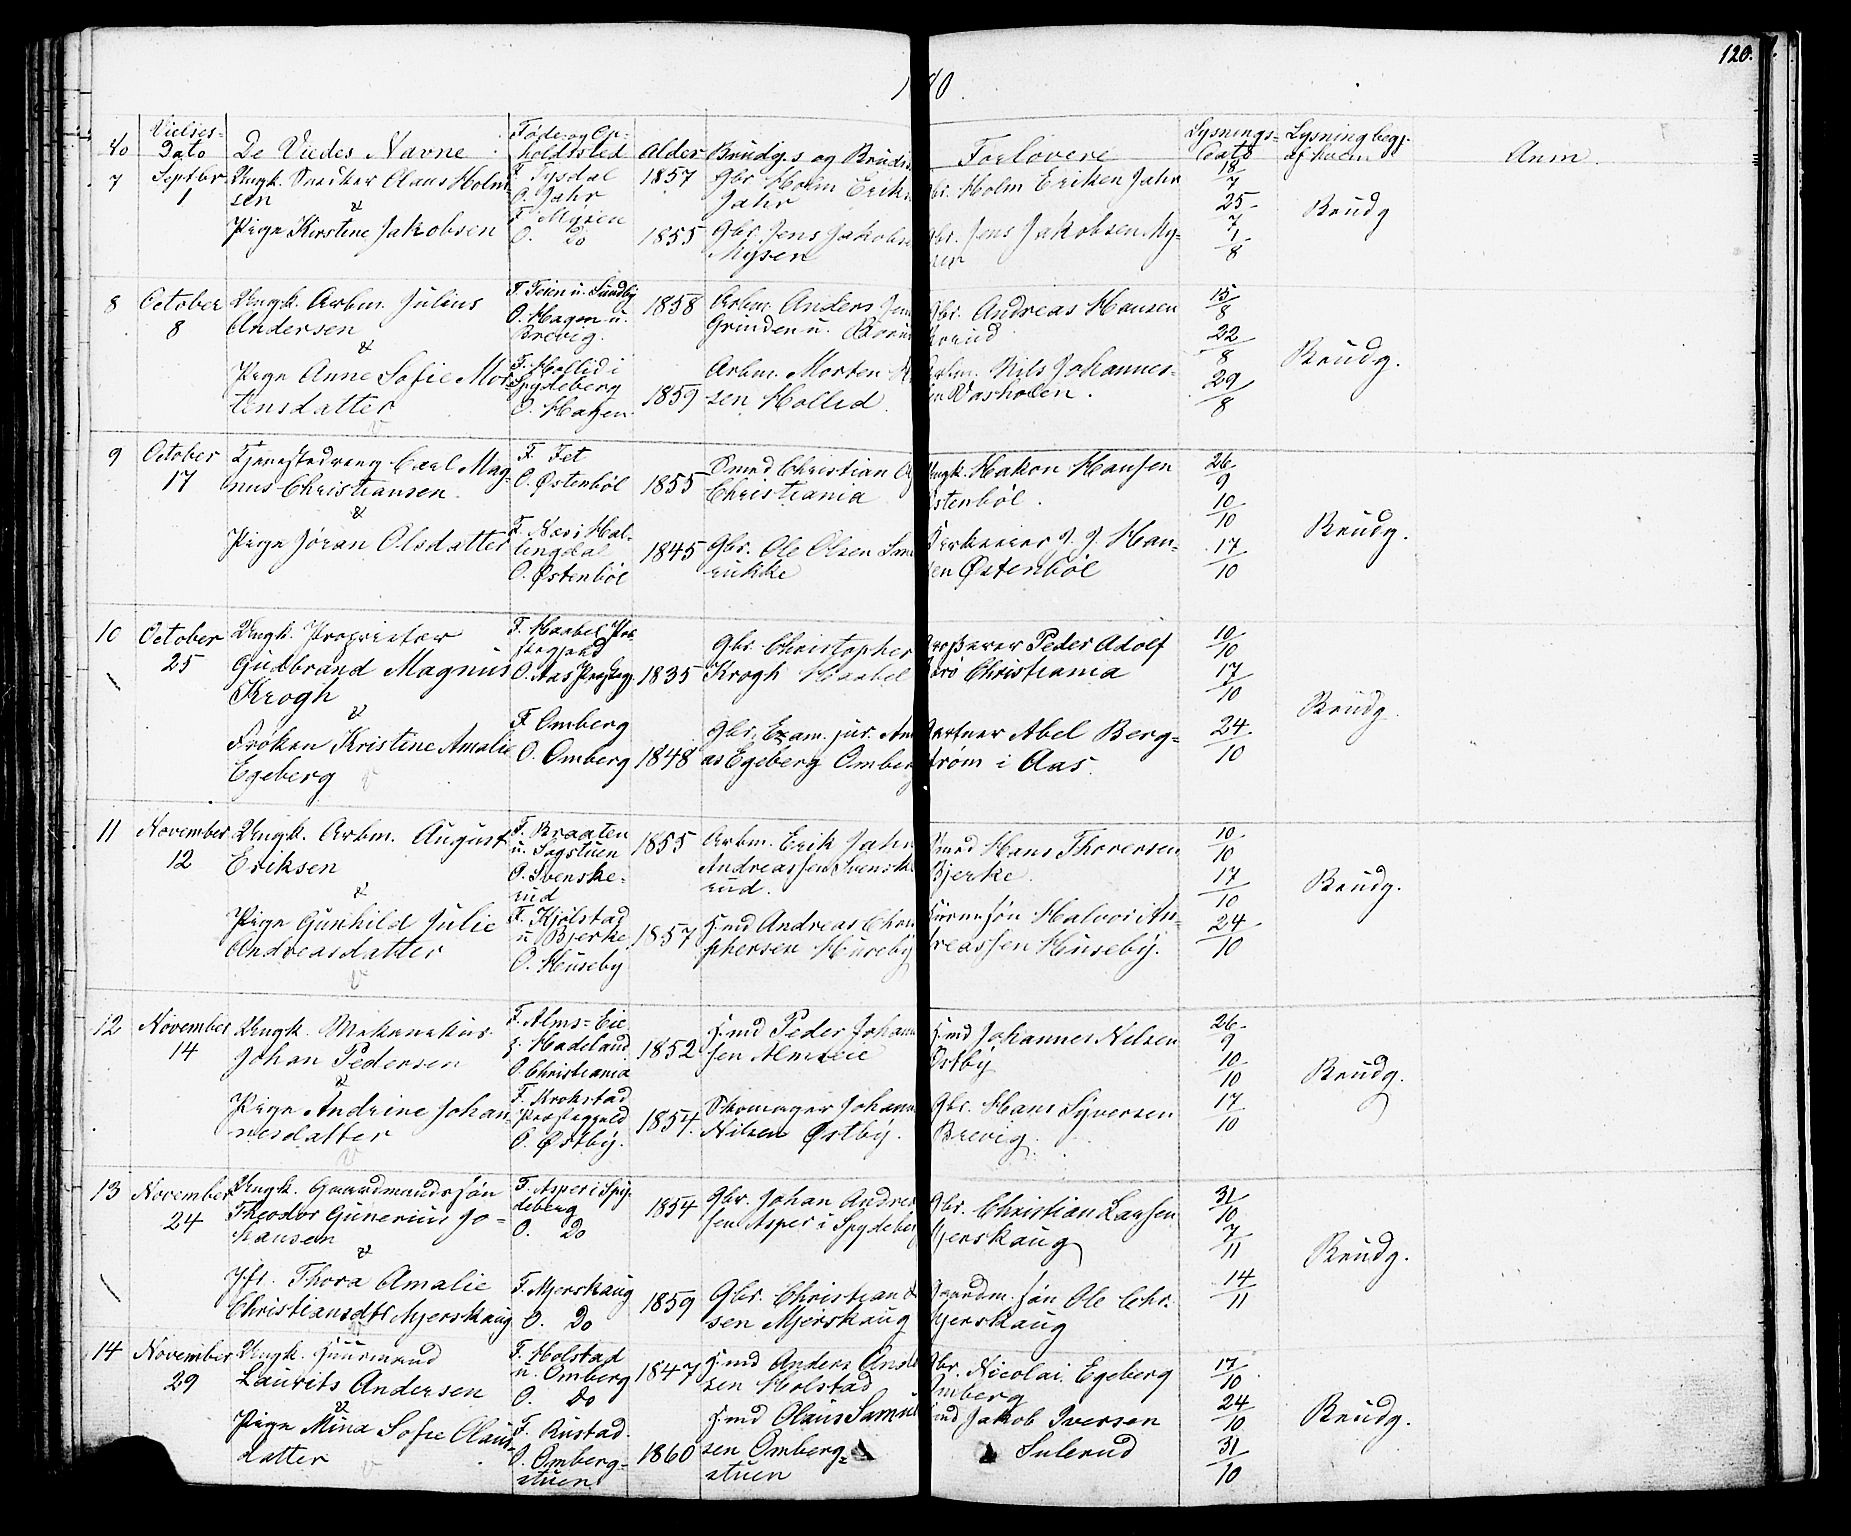 120.
No
Vielses-
Dato
De Viedes Navne
Føde og Op-
holdssted
Alder
Brudg.s og Bruds
Forlovere
Lysnings-
Dato
Lysning begj.
af hvem
Anm.
7
Septbr
1
Ungk. Snedker Olaus Holm-
sen
&
Pige Kirstine Jakobsen
F. Tysdal
O. Jahr
F. Mysen
O. Do
1857
1855
Gbr Holm Erik
Jahr
Gbr. Jens Jakobse
Mysen
Gbr. Holm Eriksen Jahr
Gbr. Jens Jakobsen My-
sen
18/7
25/7
1/8
Brudg
8
October
8
Ungk. Arbm. Julius
Andersen
&
Pige Anne Sofie Mor-
tensdatter
F. Teien u. Sundby
O. Hagen u.
Brevig.
F. Hollid i
Spydeberg
O. Hagen
1858
1859
Arbm. Anders Jen
Grinden u.
Arbm. Morten
sen Hollid.
Gbr. Andreas Hansen
Arbm. Nils Johannes-
sen Vasholen.
15/8
22/8
29/8
Brudg.
9
October
17
Tjenestedreng Carl Mag-
nus Christiansen.
&
Pige Jöran Olsdatter
F. Fet
O. Østenböl
F. Næs i Hal-
lingdal
O. Østenböl
1855
1845
Smed Christian
Christiania
Gbr. Ole Olsen
rukke
Ungk. Hakon Hansen
Østenböl.
Kirkeeier J. J. Han-
sen Østenböl
26/9
10/10
17/10
Brudg.
10
October
25
Ungk. Proprietær
Gudbrand Magnus
Krogh
&
Frøken Kristine Amalie
Egeberg
F. Haabel Præ-
stegjeld
O. Aas Præstegj.
F. Omberg
O. Omberg
1835
1848
Gbr. Christopher
Krogh Haabel
Gbr. Exam. jur. An
as Egeberg Omberg
Grosserer Peder Adolf
Christiania
Gartner Abel Berg-
strøm i Aas.
10/10
17/10
24/10
Brudg.
11
November
12
Ungk. Arbm. August
Eriksen
&
Pige Gunhild Julie
Andreasdatter
F. Braaten
u. Sagstuen
O. Svenske-
rud
F. Kjölstad
u. Bjerke
O. Huseby
1855
1857
Arbm. Erik Jahn
Andreassen Svenske
rud.
H.md Andreas Chri
phersen Huseby
Smed Hans Thoresen
Bjerke.
Halvor An-
dreassen Huseby.
10/10
17/10
24/10
Brudg.
12
November
14
Ungk. Mekanikus
Johan Pedersen
&
Pige Andrine Johan-
nesdatter
F. Alms-Eie
Hadeland
O. Christiania
F. Krokstad
Præstegjeld
O. Østby.
1852
1854.
H.md Peder Johann
sen Almseie
Skomager Johann
Nilsen Østby.
H.md Johannes Nilsen
Østby
Gbr. Hans Syversen
Brevig.
26/9
10/10
17/10
Brudg.
13
November
24
Ungk. Gaardmandssön
Theodor Gunerius Jo-
hansen
&
Jfr. Thora Amalie
Christiansdtr Mjerskaug
F. Asper i Spy-
deberg
O. Do
F. Mjerskaug
O. Do
1854
1859
Gbr. Johan Andrea
sen Asper i Spydeber
Gbr. Christian
sen Mjerskaug
Gbr. Christian Larsen
Mjerskaug
Gaardm. sön Ole Chr.
Mjerskaug
31/10
7/11
14/11
Brudg.
14
November
29
Ungk. Huusmand
Laurits Andersen
&
Pige Mina Sofie Olaus-
datter
F. Holstad
u. Omberg
O. Do
F. Rustad.
O. Omberg-
stuen
1847
1860
H.md Anders
sen Holstad
H.md Olaus Samuel
sen Omberg-
stuen
Gbr. Nicolai Egeberg
Omberg
H.md Jakob Iversen
Sulerud
17/10
24/10
31/10
Brudg.